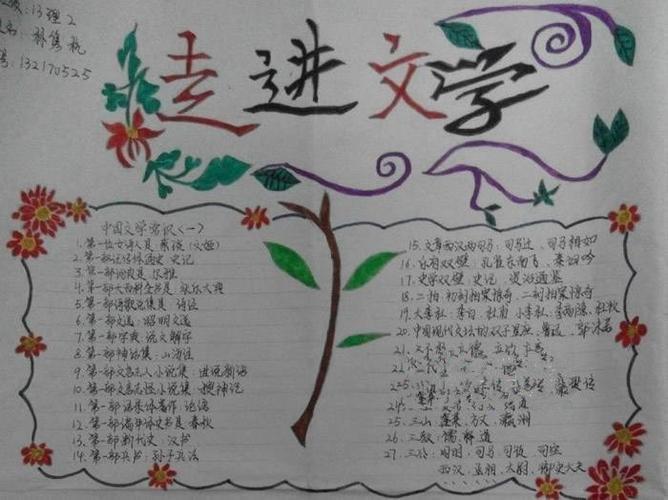 级：13理2
名：孙隽杭
号：132170525
走进文学
中国文学常识<一>
1.第一位女诗人是：蔡琰（文姬）
2.第一部纪传体通史：史记
3.第一部词典是：尔雅
4.第一部大百科全书是：永乐大典
5.第一部诗歌总集是：诗经
6.第一部文选：昭明文选
7.第一部字典：说文解字
8.第一部神话集：山海经
9.第一部文言志人小说集：世说新语
10.第一部文言志怪小说集：搜神记
11.第一部语录体著作：论语
12.第一部编年体史书是：春秋
13.第一部断代史：汉书
14.第一部兵书：孙子兵法
15.文章西汉两司马：司马迁、司马相如
16.乐府双璧：孔雀东南飞、秦妇吟
17.史学双璧：史记、资治通鉴
18.二拍：初刻拍案惊奇、二刻拍案惊奇
19.大李杜：李白、杜甫 小李杜：李商隐、杜牧
20.中国现代文坛的双子星座：鲁迅、郭沫若
21.三不朽：立德、立功、立言
22.
25.三山：蓬莱、方丈、瀛洲
26.三教：儒、释、道
27.三公：周朝：司马、司徒、司空
西汉：丞相、太尉、御史大夫